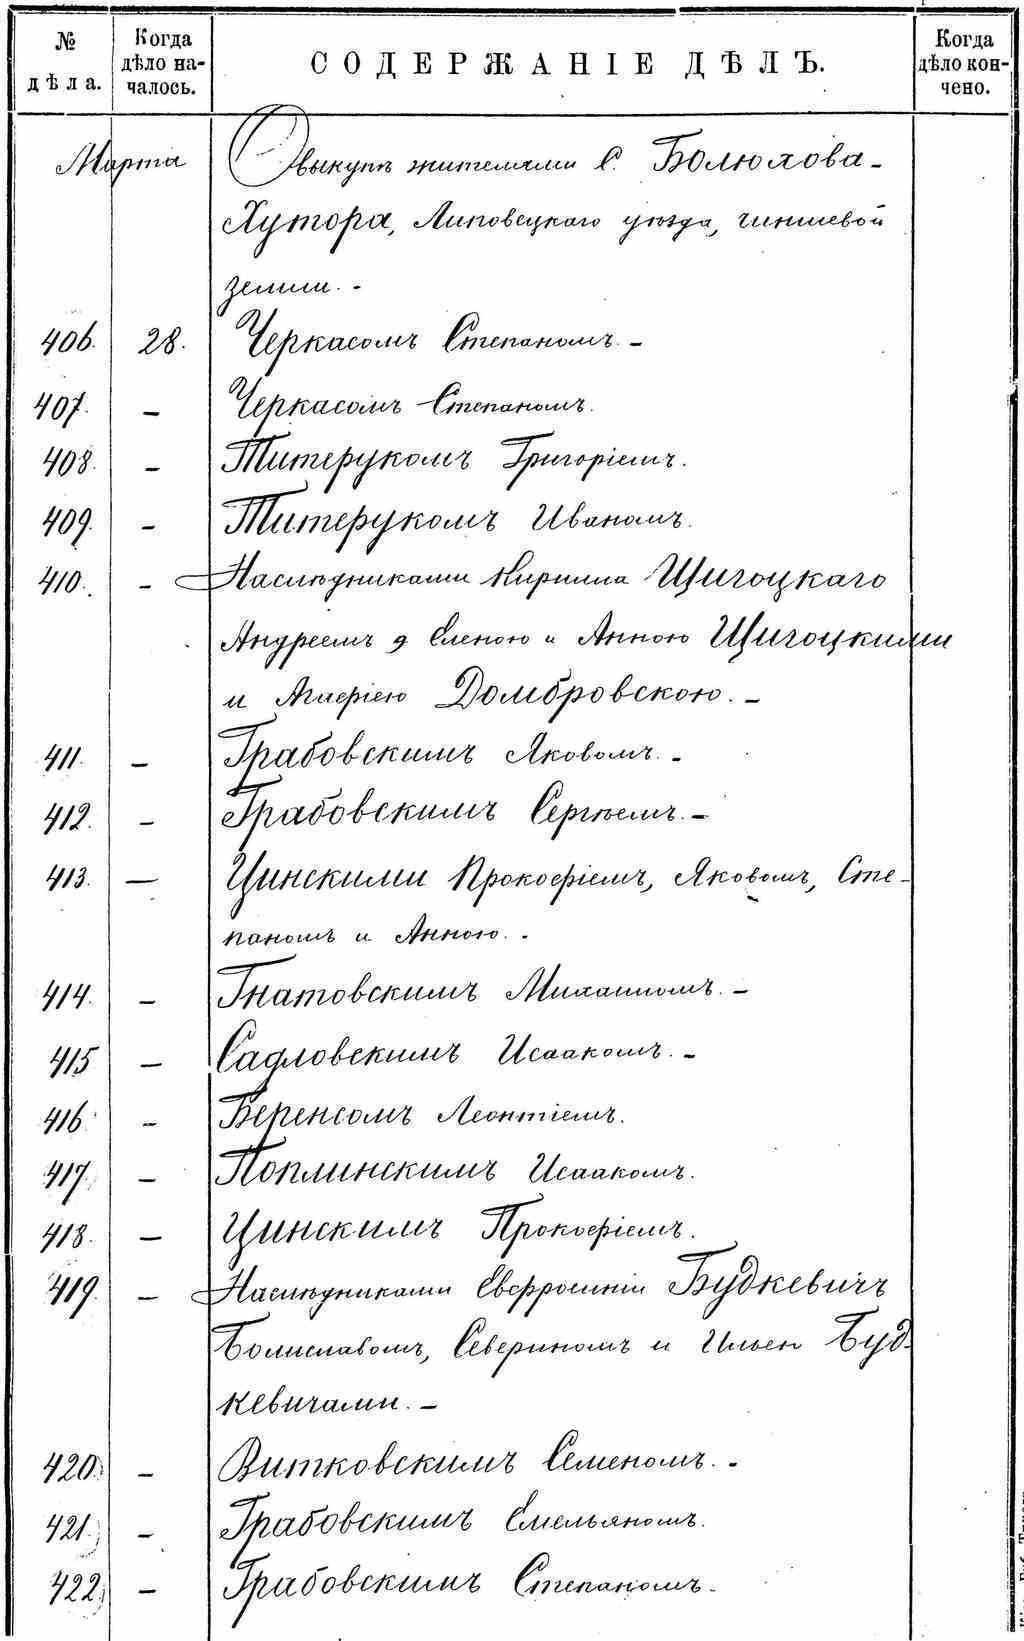 № дѣла. Когда дѣло началось. СОДЕРЖАНІЕ ДѢЛЪ. Когда дѣло кончено.
Марта О выкупѣ жителями с. Болюхова-
Хутора, Липовецкаго уѣзда, чиншевой
земли. -
406. 28. Черкасомъ Степаномъ. -
407. - Черкасомъ Степаномъ.
408. - Титерукомъ Григоріемъ.
409. - Титерукомъ Иваномъ.
410. - Наслѣдниками Кирилла Щигоцкаго
Андреемъ, Еленою и Анною Щигоцкими
и Агафіею Домбровскою. -
411. - Грабовскимъ Яковомъ. -
412. - Грабовскимъ Сергѣемъ. -
413. - Цинскими Прокофіемъ, Яковомъ, Сте-
паномъ и Анною. -
414. - Гнатовскимъ Михаиломъ. -
415 - Садловскимъ Исаакомъ. -
416 - Беренсомъ Леонтіемъ.
417. - Поплинскимъ Исаакомъ.
418. - Цинскимъ Прокофіемъ.
419. - Наслѣдниками Евфросиніи Будкевичъ
Болиславомъ, Севериномъ и Ильею Буд-
кевичами. -
420. - Витковскимъ Семеномъ. -
421. - Грабовскимъ Емельяномъ.
422. - Грабовскимъ Степаномъ.